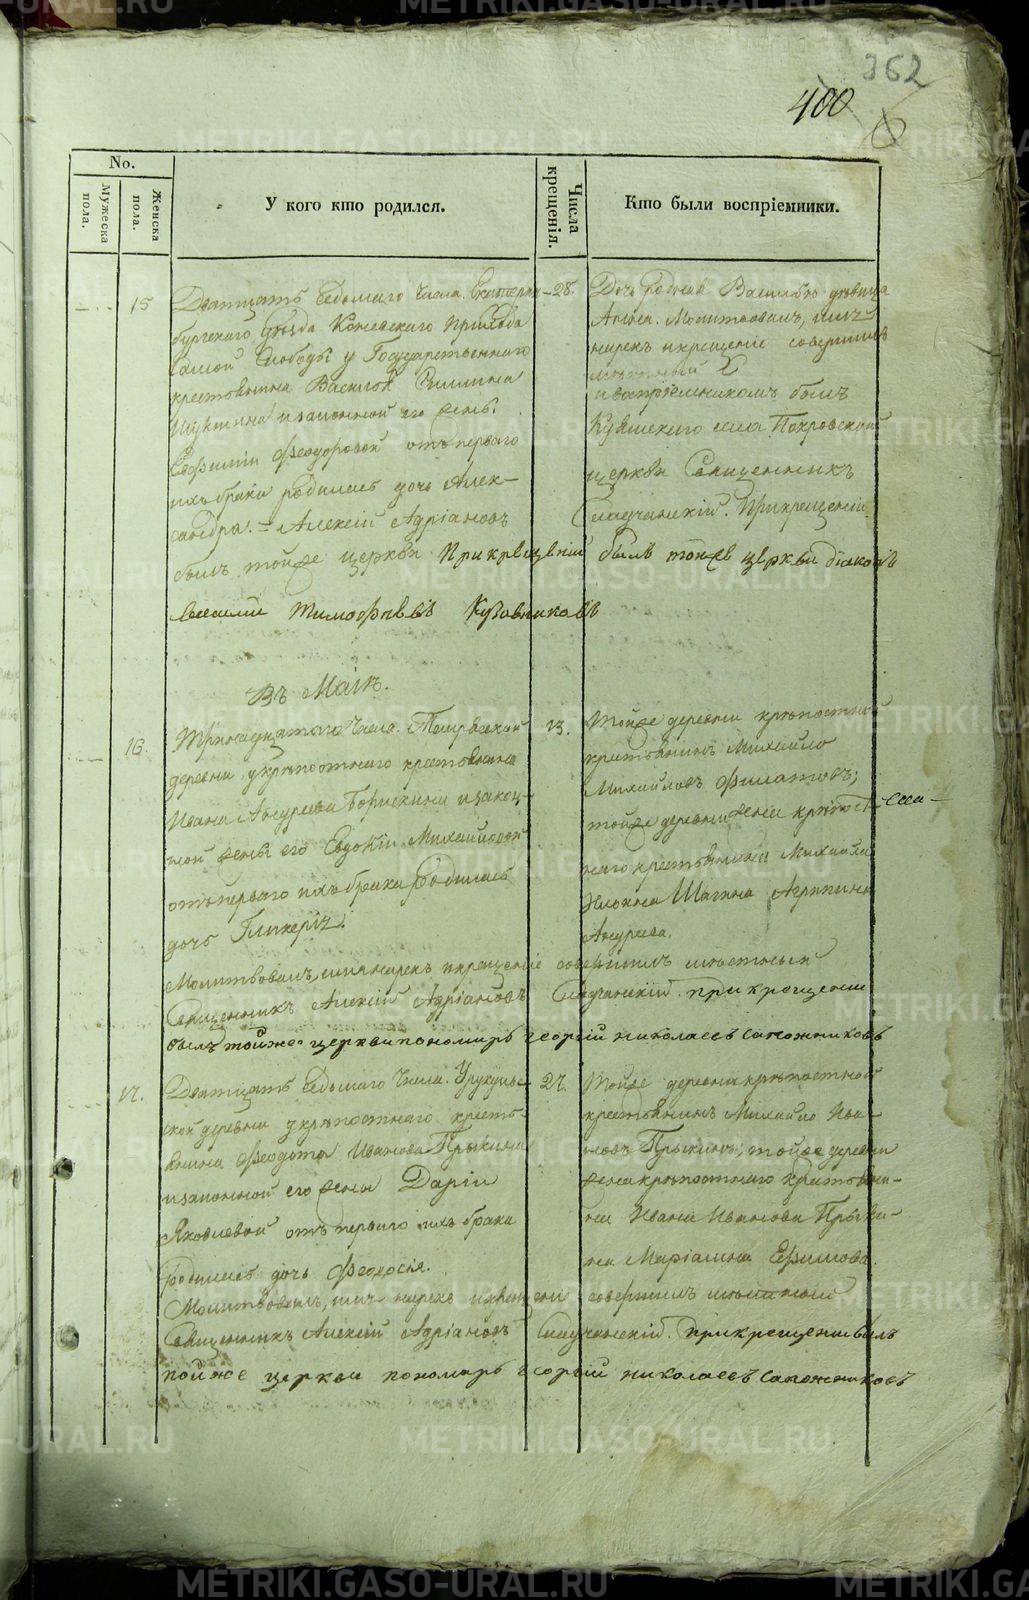 362
400
No.
Мужеска пола.
Женска пола.
У кого кто родился.
Числа крещенія.
Кто были воспріемники.
15
Дватцать седьмаго Числа. Екатерин-
бургскаго Уезда Коневскаго Прихода
самой Слободы у Государственнаго
крестьянина Василья
и законной его жены
Евфиміи Феодоровой отъ перваго
ихъ брака родилась дочь Алек-
сандра. = Алексій Адріановъ
былъ тойже церкви При крещеніи
28.
Дочь родная Василью девица
Анна. Молитвовалъ, имя
нарекъ и крещеніе совершилъ
местный
и воспріемникомъ былъ
села Покровской
церкви Священникъ
Словчанскій. При крещеніи
былъ тойже церкви діаконъ
Василий Тимофеевъ
Въ Маіѣ.
16.
Тринадцатаго Числа.
деревни у крѣпостнаго крестьянина
Ивана Андреева и закон-
ной жены его Евдокіи Михайловой
отъ перваго ихъ брака родилась
дочь Гликерія.
13.
Тойже деревни крѣпостный
крестьянинъ Михайло
Михайловъ Филатовъ;
тойже деревни жена крѣпост-
наго крестьянина Михайла
Шагина Агрипина
Андреева.
Молитвовалъ, имя нарекъ и крещеніе совершилъ местный
Священникъ Алексій Адріановъ Словчанскій. при крещении
былъ тойже церкви пономарь Георгій николаевъ сапожниковъ
17.
Дватцать седьмаго Числа.
деревни у крѣпостнаго кресть-
янина Феодота Иванова Прыкина
и законной его жены Даріи
Яковлевой отъ перваго ихъ брака
родилась дочь Феодосія.
27.
Тойже деревни крѣпостной
крестьянинъ Михайло Ива-
новъ Прыкинъ; тойже деревни
жена крѣпостнаго крестьяни-
на Ивана Иванова Прыки-
на Маріамна Ефимова.
Молитвовалъ, имя нарекъ и крещеніе совершилъ местный
Священникъ Алексій Адріановъ Словчанскій. при крещении былъ
тойже церкви пономарь Георгій николаевъ сапожниковъ
METRIKI.GASO-URAL.RU